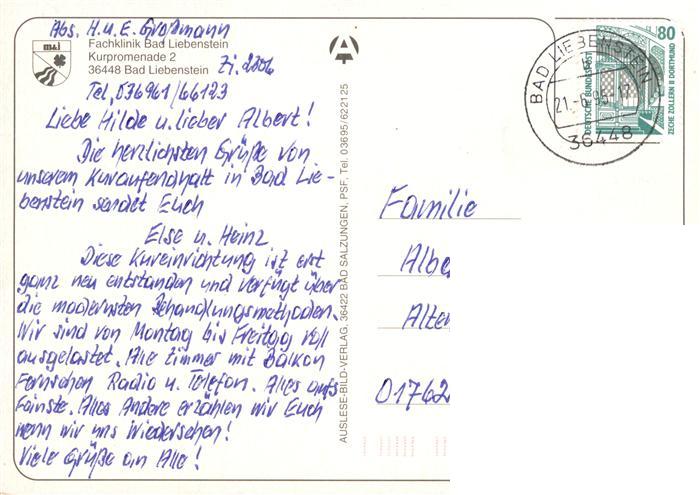 Abs. H. u. E. Großmann
m&i
Fachklinik Bad Liebenstein
Kurpromenade 2
36448 Bad Liebenstein Zi. 2206
Tel. 036961/66123
Liebe Hilde u. lieber Albert!
Die herzlichsten Grüße von
unserem Kuraufendhalt in Bad Lie-
benstein sendet Euch
Else u. Heinz
Diese Kureinrichtung ist erst
ganz neu entstanden und verfügt über
die modernsten Behandlungsmethoden.
Wir sind von Montag bis Freitag voll
ausgelastet. Alle Zimmer mit Balkon
Fernsehen Radio u. Telefon. Alles aufs
Feinste. Alles Andere erzählen wir Euch
wenn wir uns Wiedersehen!
Viele Grüße an Alle!
AUSLESE-BILD-VERLAG, 36422 BAD SALZUNGEN, PSF, Tel. 03695/622125
BAD LIEBENSTEIN
36448
80
DEUTSCHE BUNDESPOST
ZECHE ZOLLERN II DORTMUND
Familie
Albe
Alten
01762